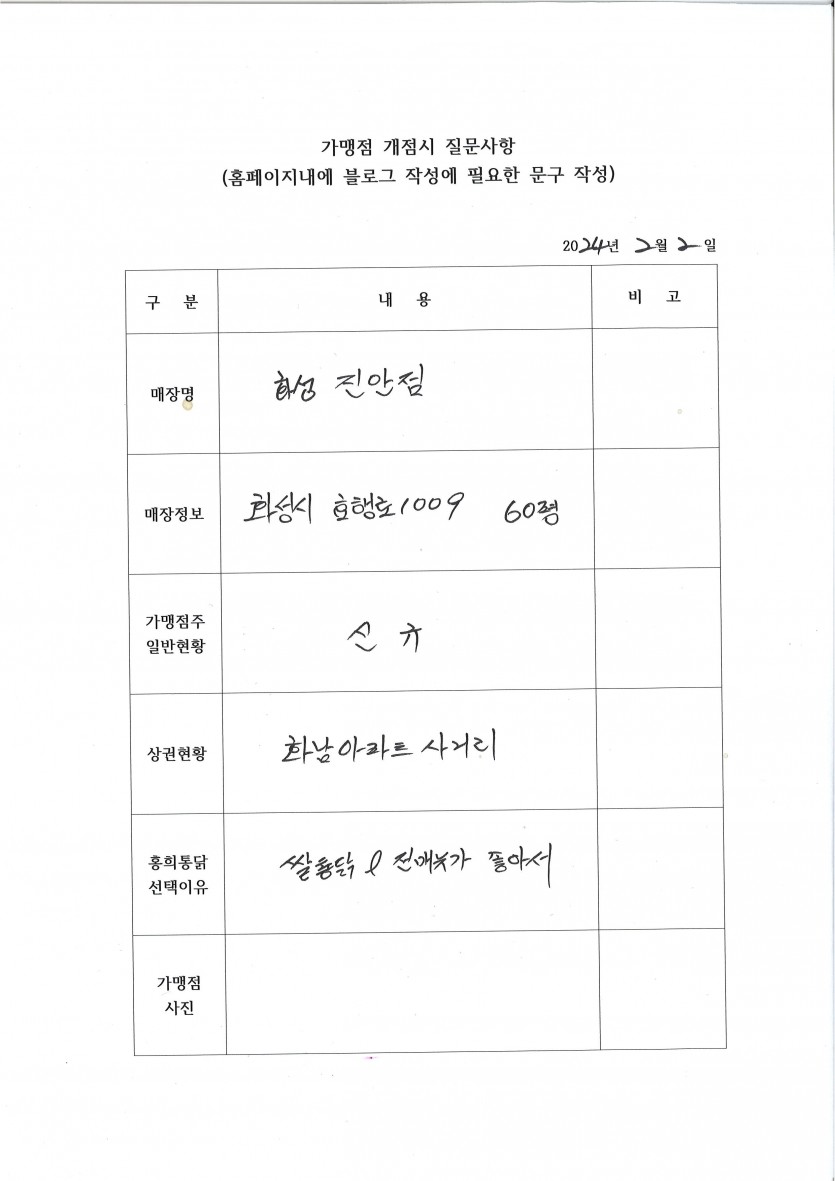 가맹점 개점시 질문사항
(홈페이지내에 블로그 작성에 필요한 문구 작성)
2024년 2월 2일
구 분 내 용 비 고
매장명 화성 진안점
매장정보 화성시 효행로1009 60평
가맹점주
일반현황
신규
상권현황 화남아파트 사거리
홍희통닭
선택이유
쌀통닭 & 전메뉴가 좋아서
가맹점
사진